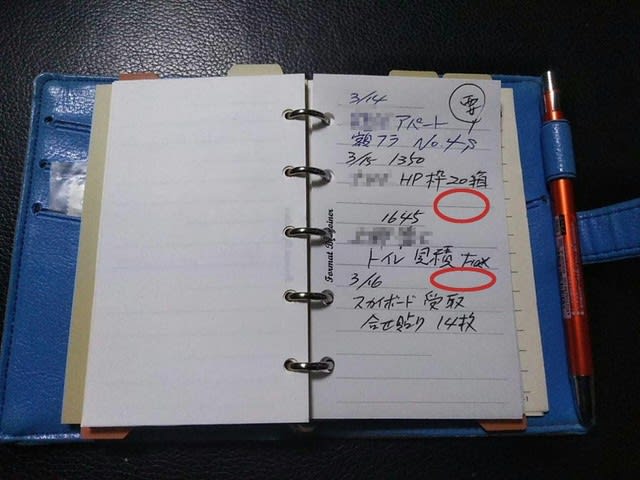 3/14
要
アパート
額フラ No.4 P
3/15 1350
HP枠20箱
1645
トイレ 見積 Fax
3/16
スカイボード 受取
合せ貼り 14枚